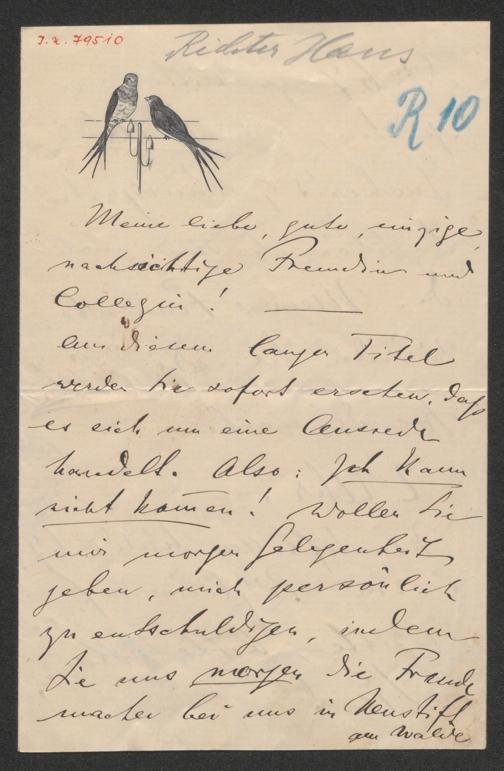 I. N. 79510
Richter Hans
R 10
Meine liebe, gute, einzige,
nachsichtige Freundin und
Collegin!
Aus diesem langen Titel
werden Sie sofort ersehen, daß
es sich um eine Ausrede
handelt. Also: Ich kann
nicht kommen! Wollen Sie
mir morgen Gelegenheit
geben, mich persönlich
zu entschuldigen, indem
Sie uns morgen die Freude
machen bei uns in Neustift
am Walde